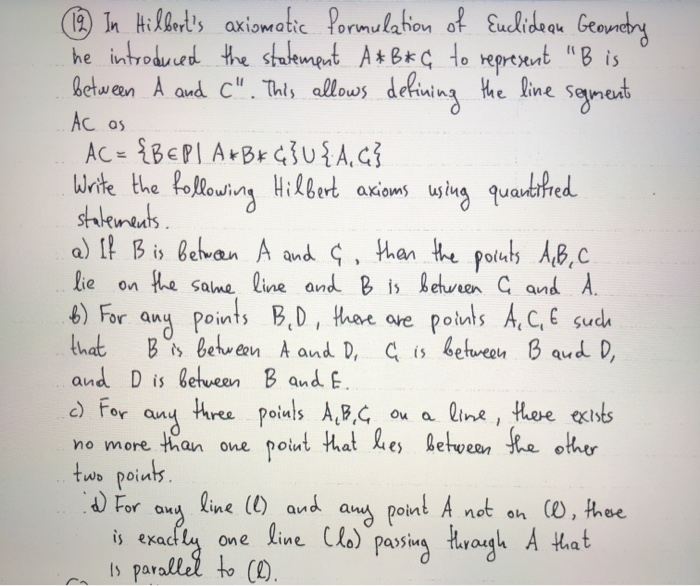 (12) In Hilbert's axiomatic formulation of Euclidean Geometry
he introduced the statement A*B*C to represent "B is
between A and C". This allows defining the line segment
AC as
AC = {B∈P| A*B*C}∪{A,C}
Write the following Hilbert axioms using quantified
statements.
a) If B is between A and C, then the points A,B,C
lie on the same line and B is between C and A.
b) For any points B,D, there are points A,C,E such
that B is between A and D, C is between B and D,
and D is between B and E.
c) For any three points A,B,C on a line, there exists
no more than one point that lies between the other
two points.
d) For any line (l) and any point A not on (l), there
is exactly one line (lo) passing through A that
is parallel to (l).